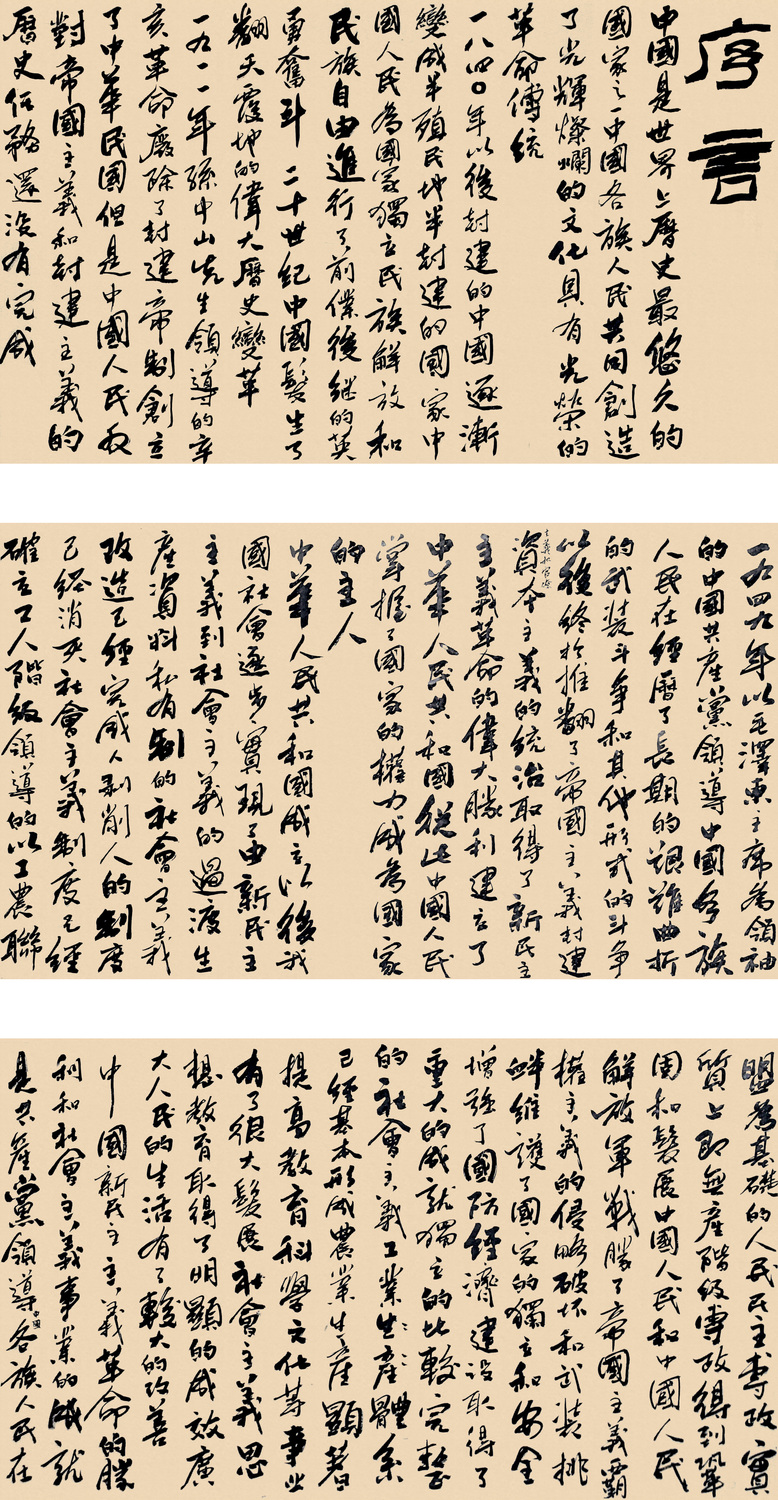 序言
中國是世界上歷史最悠久的
國家之一中國各族人民共同創造
了光輝燦爛的文化具有光榮的
革命傳統
一八四〇年以後封建的中國逐漸
變成半殖民地半封建的國家中
國人民為國家獨立民族解放和
民族自由進行了前僕後繼的英
勇奮鬥 二十世紀中國髮生了
翻天覆地的偉大曆史變革
一九一一年孫中山先生領導的辛
亥革命廢除了封建帝制創立
了中華民國但是中國人民反
對帝國主義和封建主義的
曆史任務還沒有完成
一九四九年以毛澤東主席為領袖
的中國共產黨領導中國各族
人民在經曆了長期的艱難曲折
的武裝斗爭和其他形式的斗爭
以後終於推翻了帝國主義封建
主義和官僚
資本主義的統治取得了新民主
主義革命的偉大勝利建立了
中華人民共和國從此中國人民
掌握了國家的權力成為國家
的主人
中華人民共和國成立以後我
國社會逐步實現了由新民主
主義到社會主義的過渡生
產資料私有制的社會主義
改造已經完成人剥削人的制度
已經消灭社會主義制度已經
確立工人階級領導的以工農聯
盟為基礎的人民民主專政實
質上即無產階級專政得到鞏
固和髮展中國人民和中國人民
解放軍戰勝了帝國主義霸
權主義的侵略破坏和武裝挑
衅維護了國家的獨立和安全
增強了國防經濟建設取得了
重大的成就獨立的比較完整
的社會主義工業生產體系
已經基本形成農業生產顯著
提高教育科學文化等事业
有了很大髮展社會主義思
想教育取得了明顯的成效廣
大人民的生活有了較大的改善
中國新民主主義革命的勝
利和社會主義事業的成就
是共產黨領導中國各族人民在